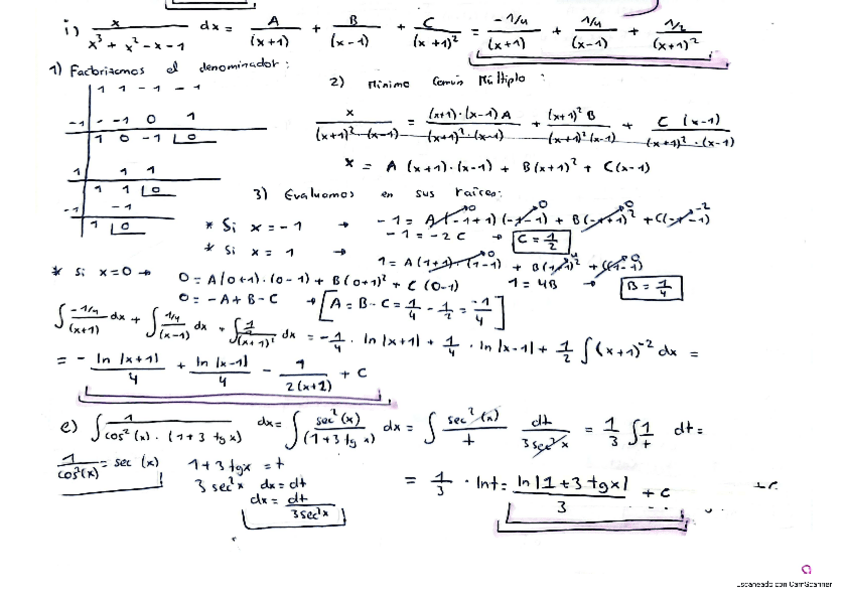 i) x / (x³ + x² - x - 1) dx = A/(x+1) + B/(x-1) + C/(x+1)² = (-1/4)/(x+1) + (1/4)/(x-1) + (1/2)/(x+1)²
1) Factorizamos el denominador:
2) Mínimo Común Múltiplo:
1 1 -1 -1
-1 -1 0 1
1 0 -1 0
1 1 1
1 1 0
-1 -1
1 0
x/((x+1)²·(x-1)) = (x+1)·(x-1)A/((x+1)²·(x-1)) + (x+1)²B/((x+1)²(x-1)) + C(x-1)/((x+1)²·(x-1))
x = A(x+1)·(x-1) + B(x+1)² + C(x-1)
3) Evaluamos en sus raíces:
* Si x = -1 → -1 = A(-1+1)(-1-1) 0 + B(-1+1)² 0 + C(-1-1) -2
-1 = -2C → C = 1/2
* Si x = 1 → 1 = A(1+1)·(1-1) 0 + B(1+1)² 4 + C(1-1) 0
1 = 4B → B = 1/4
* Si x=0 → 0 = A(0+1)·(0-1) + B(0+1)² + C(0-1)
0 = -A + B - C → [A = B - C = 1/4 - 1/2 = -1/4]
∫ (-1/4)/(x+1) dx + ∫ (1/4)/(x-1) dx + ∫ (1/2)/(x+1)² dx = -1/4 · ln|x+1| + 1/4 · ln|x-1| + 1/2 ∫(x+1)⁻² dx =
= - ln|x+1|/4 + ln|x-1|/4 - 1/(2(x+1)) + C
e) ∫ 1/(cos²(x)·(1+3 tg x)) dx = ∫ sec²(x)/(1+3 tg x) dx = ∫ sec²(x)/t dt/(3sec²x) = 1/3 ∫ 1/t dt =
1/cos²(x) = sec(x) 1+3 tgx = t
3 sec²x dx = dt
dx = dt/(3sec²x)
= 1/3 · lnt = ln|1+3 tgx|/3 + c
Escaneado con CamScanner